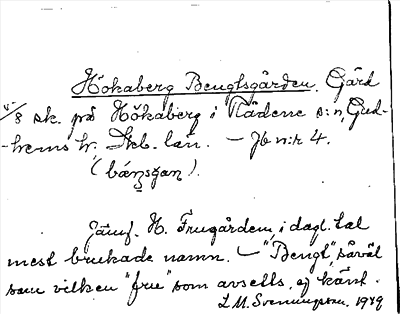 Hökaberg Bengtsgården. Gård
5/8 sk. på Hökaberg i Rådene s:n, Gud-
-hems hd. Skb. län. – Jb n:r 4.
(bánsgan).
Jämf. H. Frugården, i dagl. tal
mest brukade namn. – "Bengt", såväl
som vilken "fru" som avsetts, ej känt.
L.M. Svenungsson. 1929